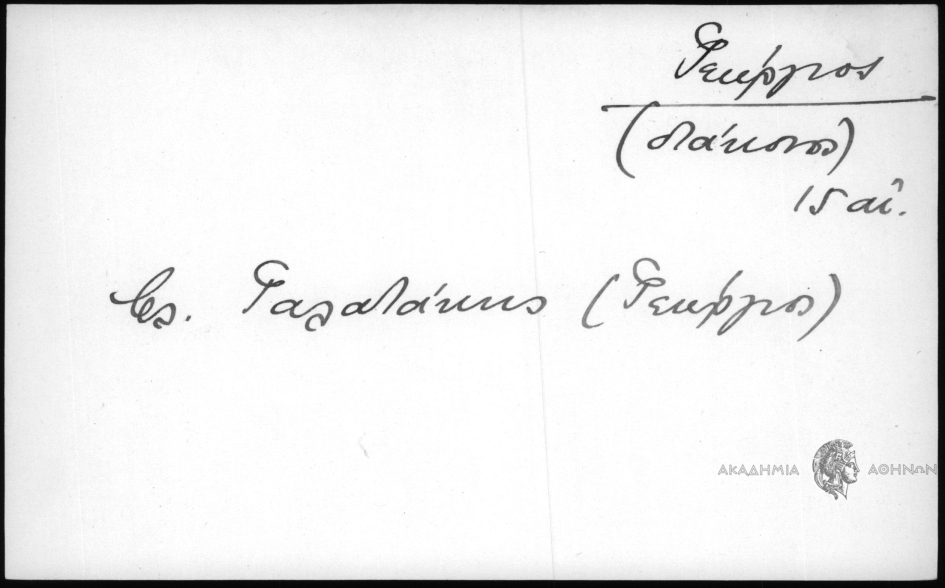 Γεώργιος
(διάκονος)
15 αἰ.
βλ. Γαλατάκης (Γεώργιος)
ΑΚΑΔΗΜΙΑ ΑΘΗΝΩΝ